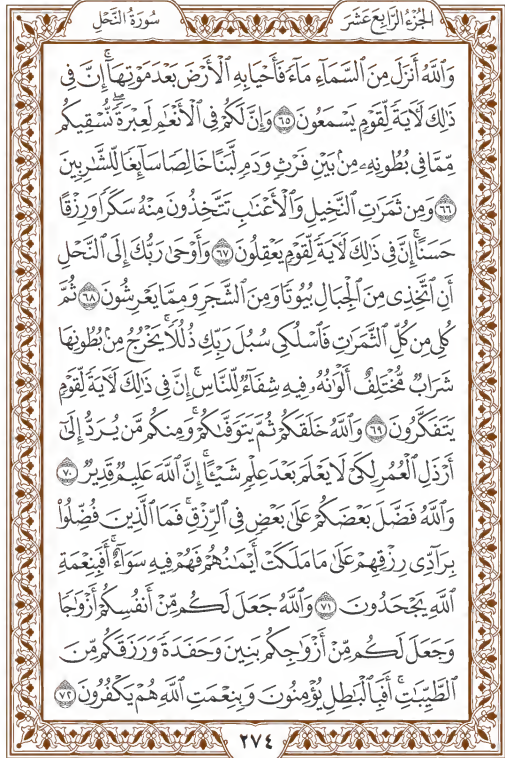 الجُزْءُ الرَّابِعَ عَشَرَ
سُورَةُ النَّحْلِ
وَاللَّهُ أَنزَلَ مِنَ السَّمَاءِ مَاءً فَأَحْيَا بِهِ الْأَرْضَ بَعْدَ مَوْتِهَا ۚ إِنَّ فِي
ذَٰلِكَ لَآيَةً لِّقَوْمٍ يَسْمَعُونَ ٦٥ وَإِنَّ لَكُمْ فِي الْأَنْعَامِ لَعِبْرَةً ۖ نُّسْقِيكُم
مِّمَّا فِي بُطُونِهِ مِن بَيْنِ فَرْثٍ وَدَمٍ لَّبَنًا خَالِصًا سَائِغًا لِّلشَّارِبِينَ
٦٦ وَمِن ثَمَرَٰتِ النَّخِيلِ وَالْأَعْنَٰبِ تَتَّخِذُونَ مِنْهُ سَكَرًا وَرِزْقًا
حَسَنًا ۗ إِنَّ فِي ذَٰلِكَ لَآيَةً لِّقَوْمٍ يَعْقِلُونَ ٦٧ وَأَوْحَىٰ رَبُّكَ إِلَى النَّحْلِ
أَنِ اتَّخِذِي مِنَ الْجِبَالِ بُيُوتًا وَمِنَ الشَّجَرِ وَمِمَّا يَعْرِشُونَ ٦٨ ثُمَّ
كُلِي مِن كُلِّ الثَّمَرَٰتِ فَاسْلُكِي سُبُلَ رَبِّكِ ذُلُلًا ۚ يَخْرُجُ مِن بُطُونِهَا
شَرَابٌ مُّخْتَلِفٌ أَلْوَٰنُهُ فِيهِ شِفَاءٌ لِّلنَّاسِ ۗ إِنَّ فِي ذَٰلِكَ لَآيَةً لِّقَوْمٍ
يَتَفَكَّرُونَ ٦٩ وَاللَّهُ خَلَقَكُمْ ثُمَّ يَتَوَفَّىٰكُمْ ۚ وَمِنكُم مَّن يُرَدُّ إِلَىٰ
أَرْذَلِ الْعُمُرِ لِكَيْ لَا يَعْلَمَ بَعْدَ عِلْمٍ شَيْئًا ۚ إِنَّ اللَّهَ عَلِيمٌ قَدِيرٌ ٧٠
وَاللَّهُ فَضَّلَ بَعْضَكُمْ عَلَىٰ بَعْضٍ فِي الرِّزْقِ ۚ فَمَا الَّذِينَ فُضِّلُوا
بِرَادِّي رِزْقِهِمْ عَلَىٰ مَا مَلَكَتْ أَيْمَٰنُهُمْ فَهُمْ فِيهِ سَوَاءٌ ۚ أَفَبِنِعْمَةِ
اللَّهِ يَجْحَدُونَ ٧١ وَاللَّهُ جَعَلَ لَكُم مِّنْ أَنفُسِكُمْ أَزْوَٰجًا
وَجَعَلَ لَكُم مِّنْ أَزْوَٰجِكُم بَنِينَ وَحَفَدَةً وَرَزَقَكُم مِّنَ
الطَّيِّبَٰتِ ۚ أَفَبِالْبَٰطِلِ يُؤْمِنُونَ وَبِنِعْمَتِ اللَّهِ هُمْ يَكْفُرُونَ ٧٢
٢٧٤